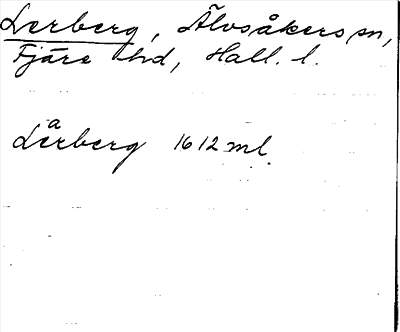 Lerberg, Älvsåkers sn,
Fjäre hd, Hall. l.
Lerberg 1612 ml
a